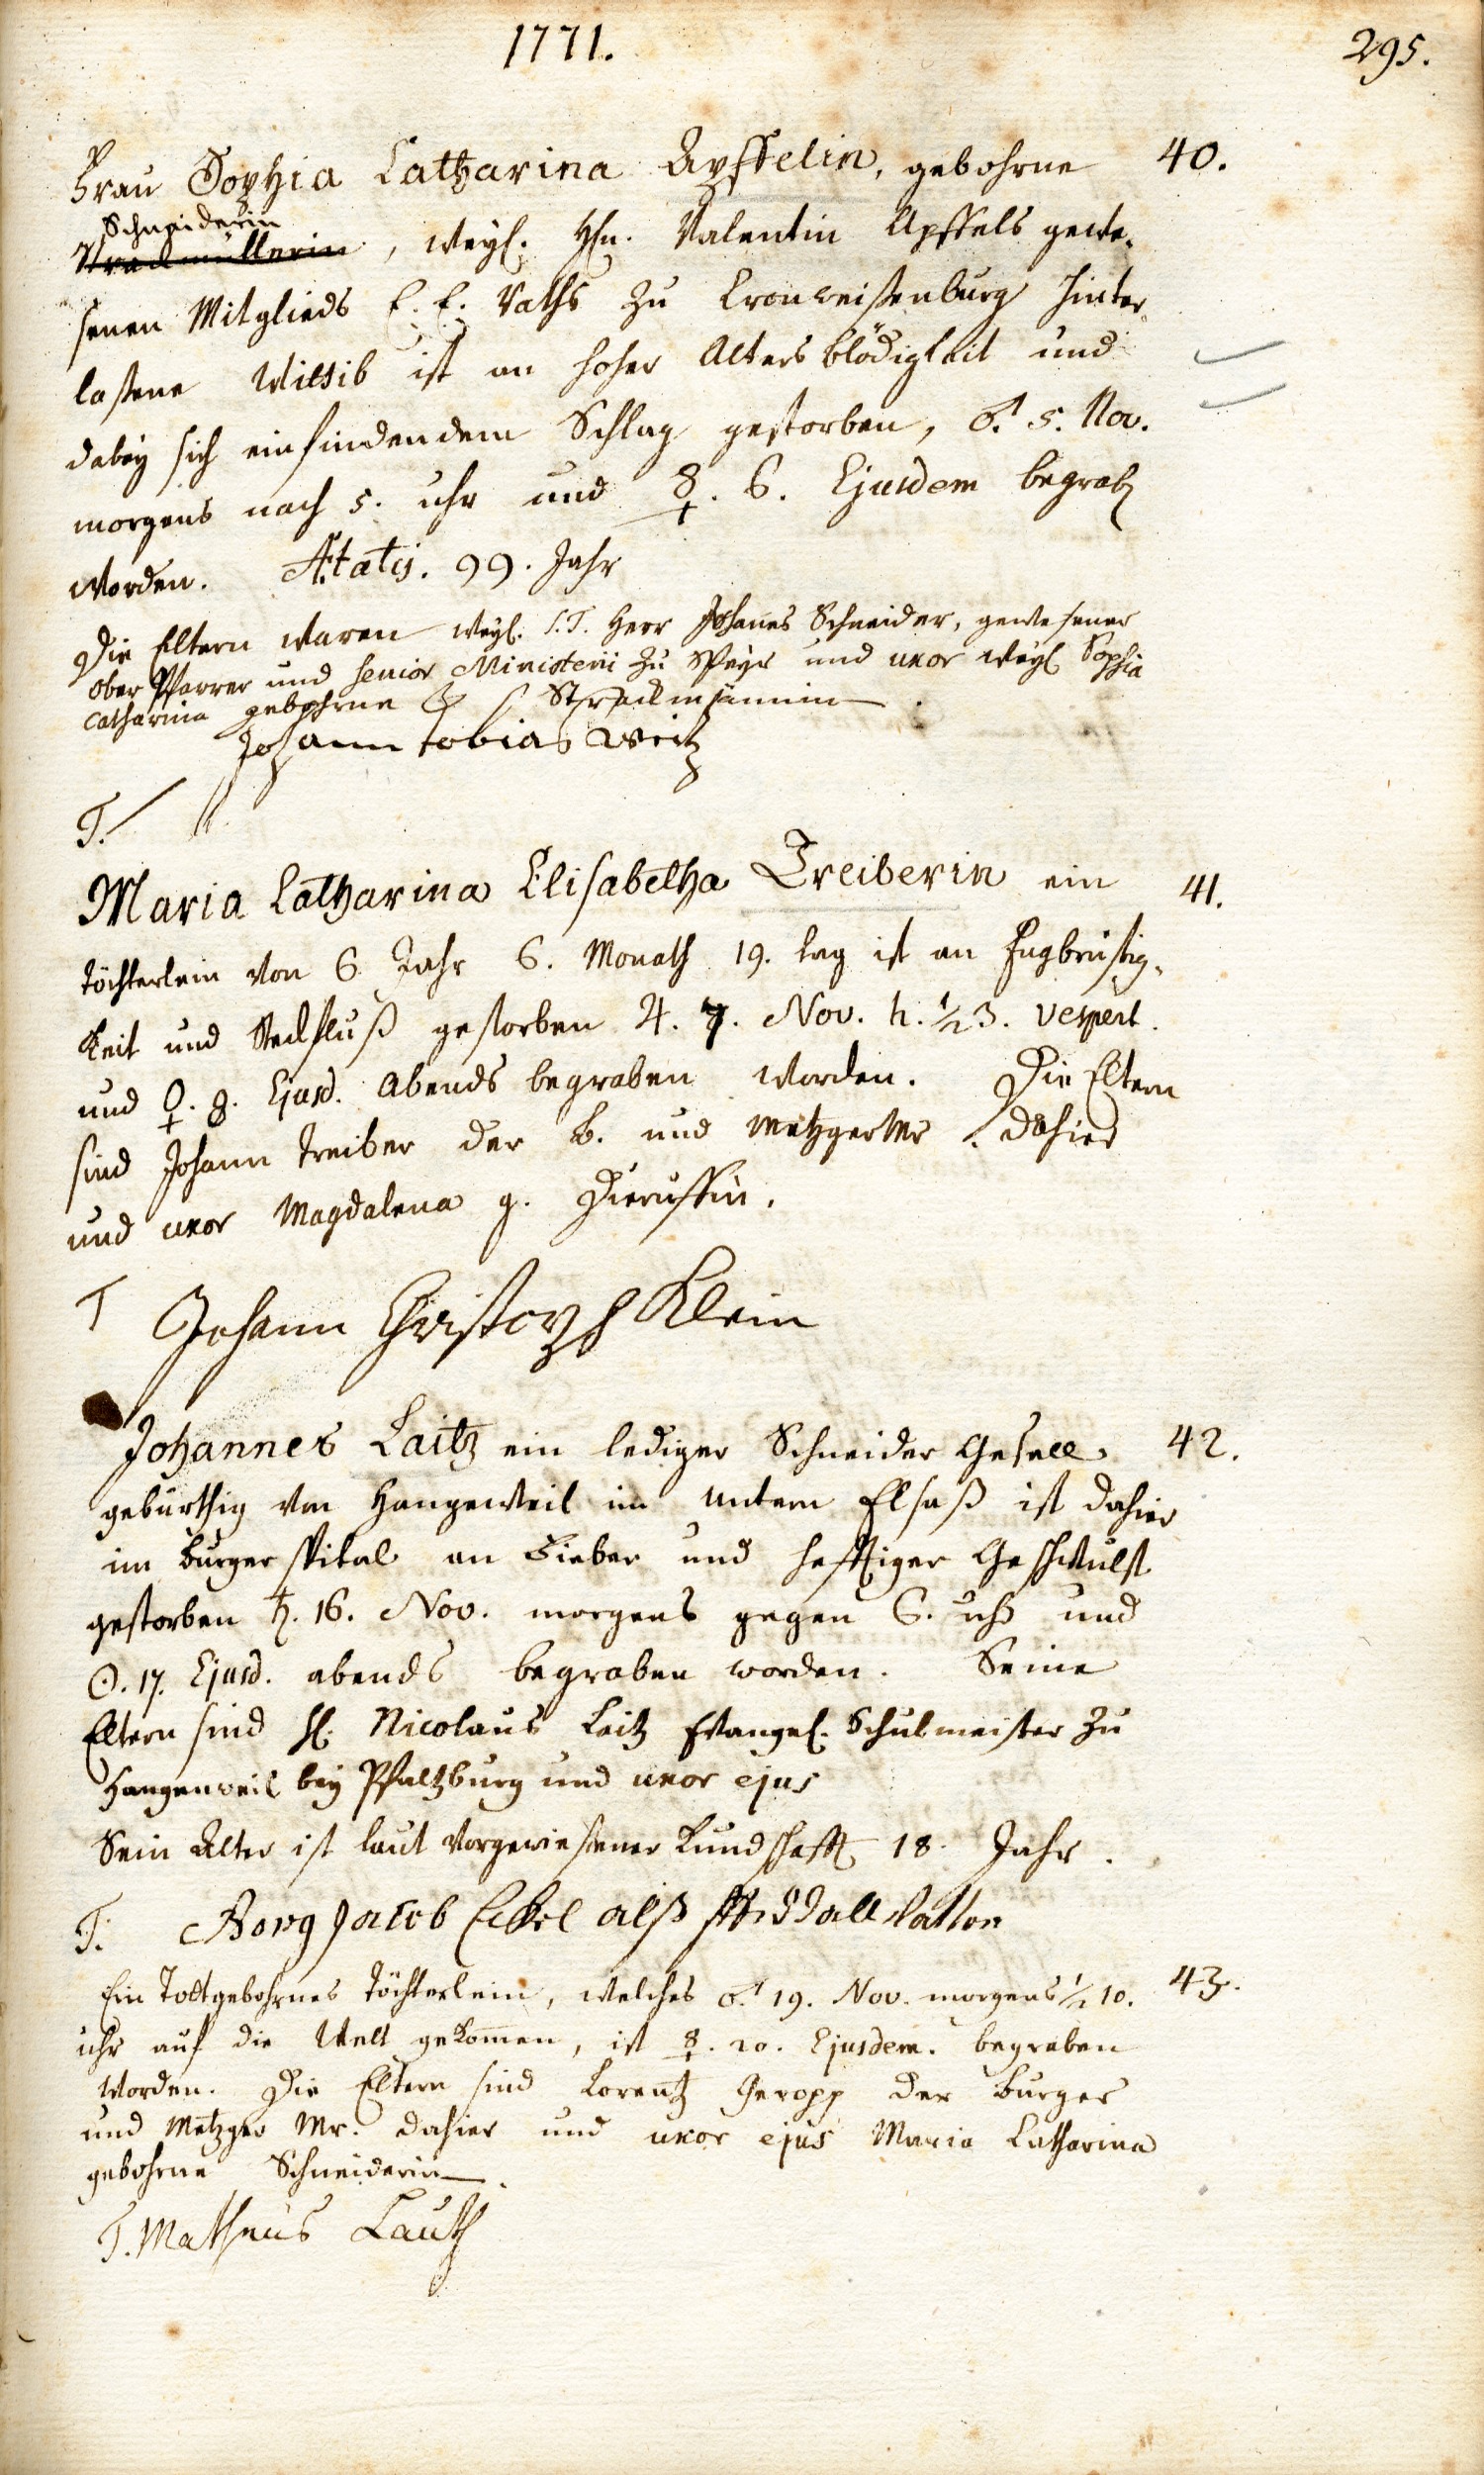 1771.
295.
Frau Sophia Catharina Apffelin, gebohrne 40.
Schneiderin
Strackmüllerin, weyl. Hn. Valentin Apffels gewe-
senen Mitglieds E. E. Raths zu Cronweißenburg hinter-
laßene Wittib ist an hoher Alters blödigkeit und
dabey sich einfindendem Schlag gestorben, ♂. 5. Nov.
morgens nach 5. uhr und ☿. 6. Ejusdem begrab
worden. Ætatis. 99. Jahr
Die Eltern waren weyl. S.T. Herr Johannes Schneider, gewesener
Ober Pfarrer und Senior Ministerii zu Speyer und uxor weyl Sophia
Catharina gebohrne Strackmännin.
Johann tobias weitz
T.
Maria Catharina Elisabetha Treiberin ein 41.
töchterlein von 6 Jahr 6. Monath 19. tag ist an Engbrüstig-
keit und Steckfluß gestorben ♃. 7. Nov. h. ½ 3. vespert.
und ♀. 8. Ejusd. Abends begraben worden. Die Eltern
sind Johann Treiber der B. und Metzger Mr dahier
und uxor Magdalena g. Hierussin.
T Johann Christoph Klein
Johannes Laitz ein lediger Schneider Gesell 42.
gebürthig von Hangeweil im untern Elsaß ist dahier
im burger spital an Fieber und hefftiger Geschwulst
gestorben ♄. 16. Nov. morgens gegen 6. uhr und
☉. 17. Ejusd. abends begraben worden. Seine
Eltern sind H. Nicolaus Laitz Evangel. Schulmeister zu
Hangenweil bey Pfaltzburg und uxor ejus
Sein Alter ist laut vorgewiesener Kundschafft 18. Jahr.
T. Jacob Eckel alß
Ein Todtgebohrnes Töchterlein, welches ♂. 19. Nov. morgens ½ 10. 43.
uhr auf die Welt gekommen, ist ☿. 20. Ejusdem. begraben
worden. Die Eltern sind Lorentz Geropp der burger
und Metzger Mr. dahier und uxor ejus Maria Catharina
gebohrne Schneiderin.
T. Matheus Lauth